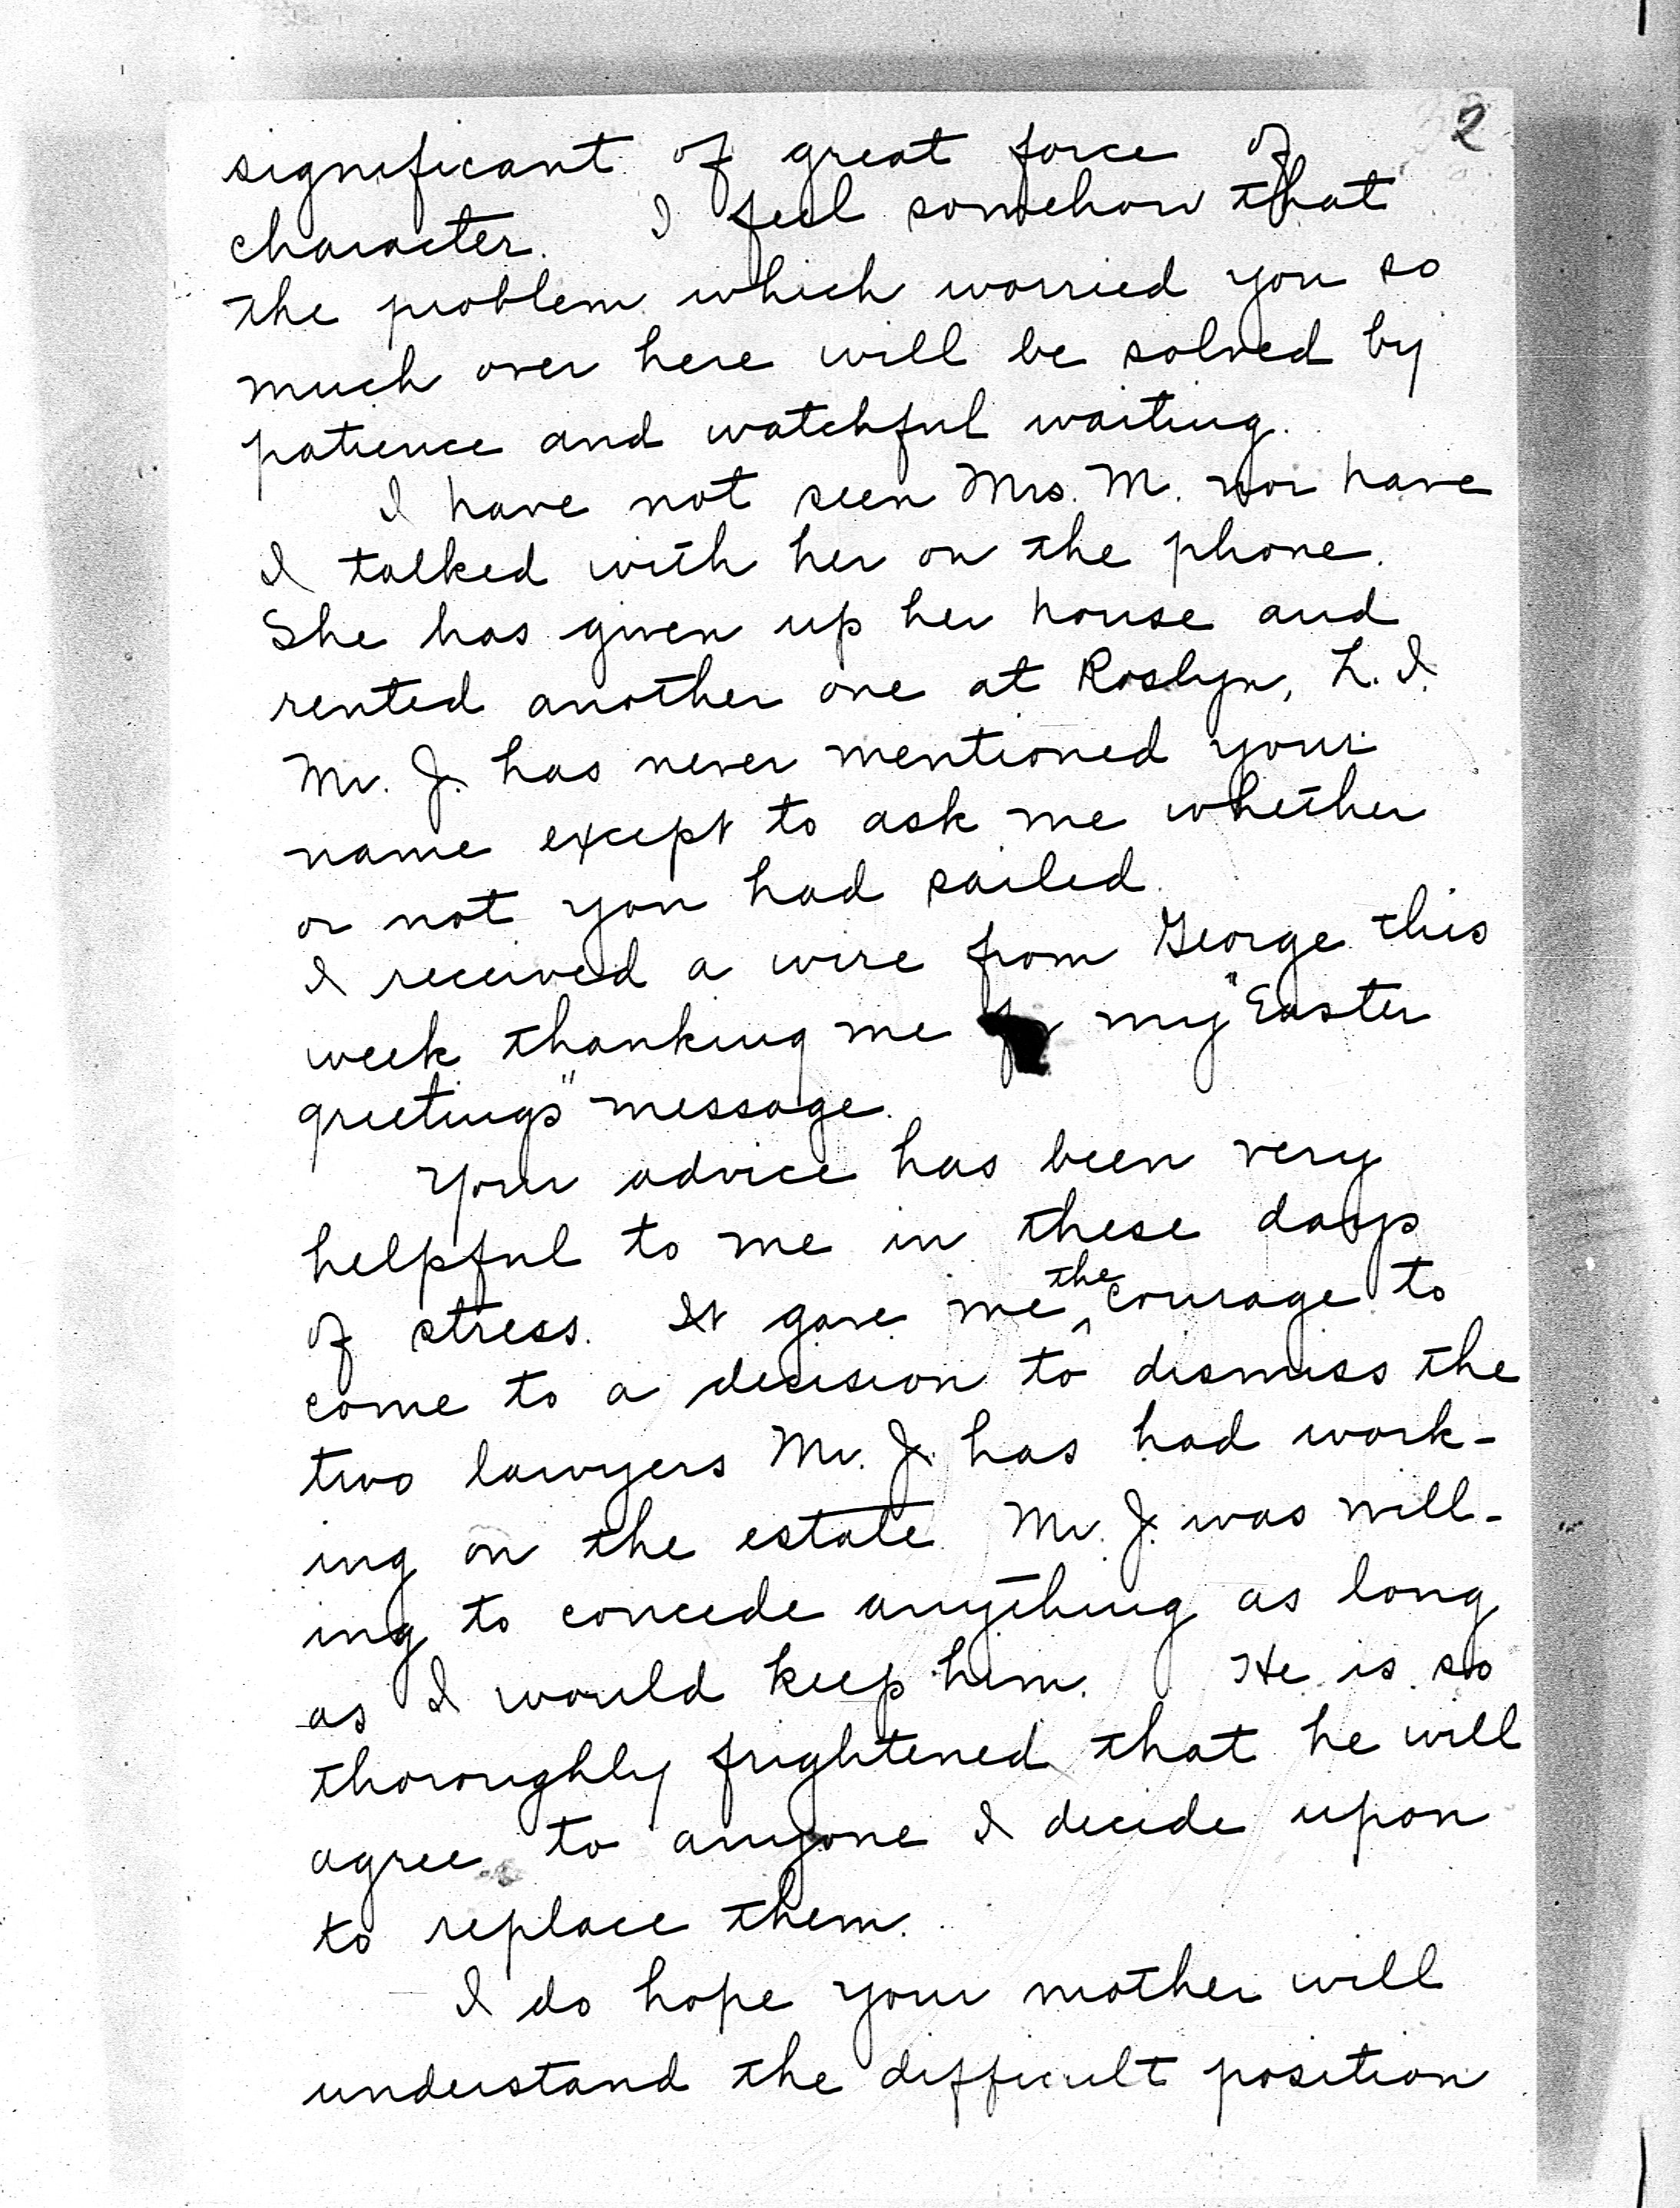 2
significant of great force of
character. I feel somehow that
the problem which worried you so
much over here will be solved by
patience and watchful waiting.
I have not seen Mrs. M. nor have
I talked with her on the phone.
She has given up her house and
rented another one at Roslyn, L. I.
Mr. J. has never mentioned your
name except to ask me whether
or not you had sailed.
I received a wire from George this
week thanking me my "Easter
greetings" message.
Your advice has been very
helpful to me in these days
of stress. It gave me the courage to
come to a decision to dismiss the
two lawyers Mr. J. has had work-
ing on the estate. Mr. J. was will-
ing to concede anything as long
as I would keep him. He is so
thoroughly frightened that he will
agree to anyone I decide upon
to replace them.
I do hope your mother will
understand the difficult position